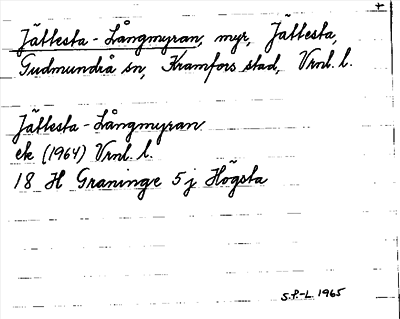 Jättesta-Långmyran, myr, Jättesta,
Gudmundrå sn, Kramfors stad, Vrnl. l.
Jättesta-Långmyran
ek (1964) Vrnl. l.
18 H Graninge 5 j Högsta
S.P-L. 1965